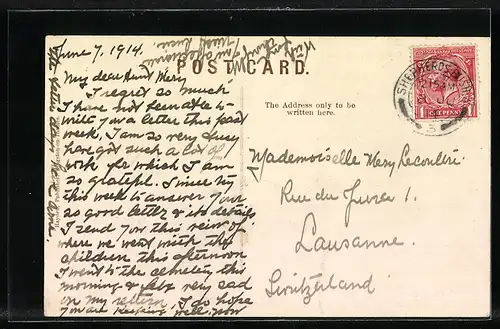 June 7, 1914.
My dear Aunt Mery
I regret so much
I have not been able to
write you a letter this past
week. I am so very busy
have got such a lot of
work for which I am
so grateful. I must try
this week to answer your
so good letter & its details
I send you this view of
where we went with the
children this afternoon
I went to the cemetery this
morning & felt very sad
on my return. I do hope
you are keeping well, now
POST CARD.
The Address only to be
written here.
SHEPHERDS
ONE PENNY
Mademoiselle Mery
Rue du Jura 1.
Lausanne.
Switzerland